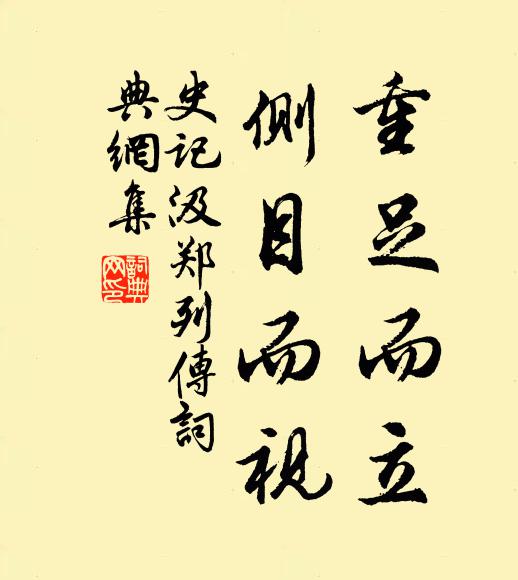 重足而立
側目而視
史记汲郑列傳詞
典網集
詞典
网印